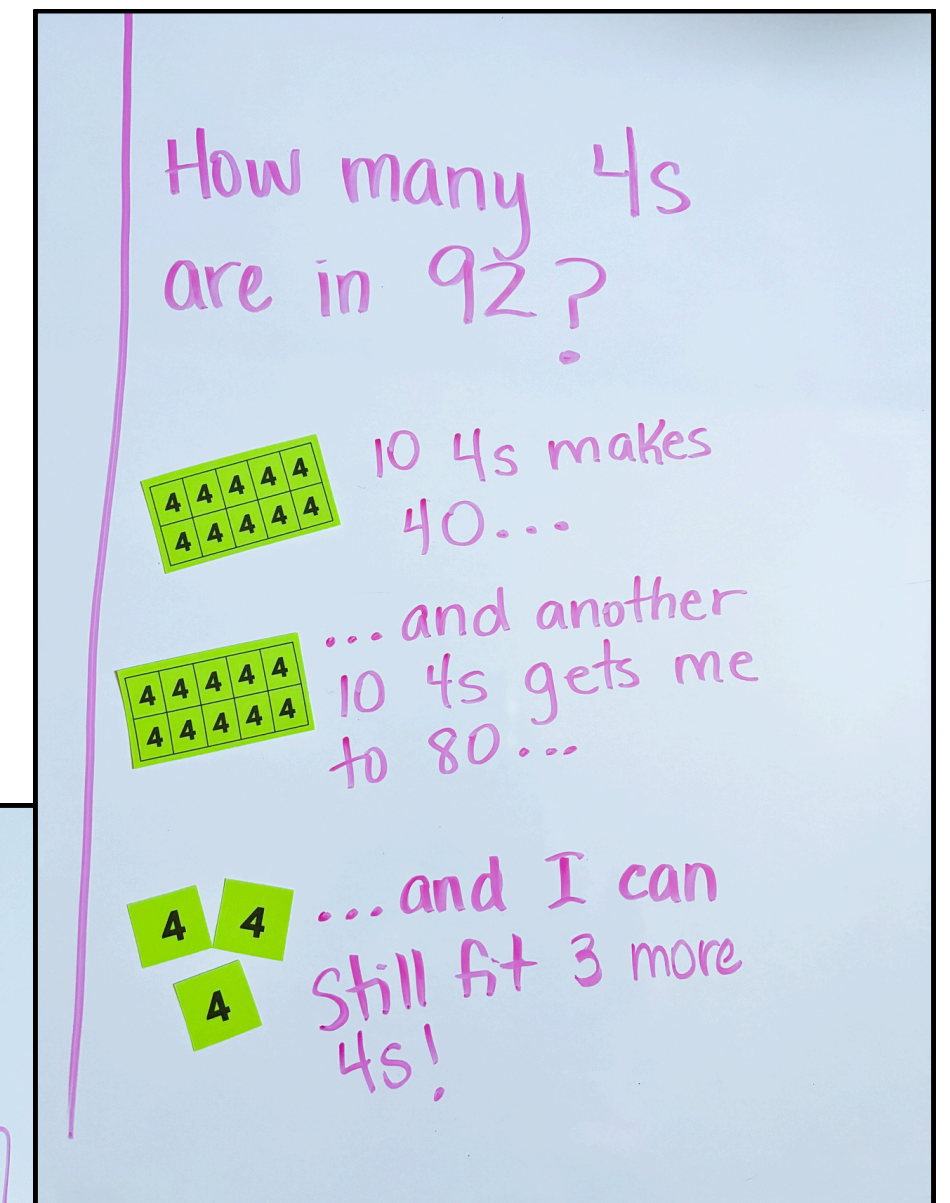 How many 4s
are in 92?
4 4 4 4 4
4 4 4 4 4
10 4s makes
40...
4 4 4 4 4
4 4 4 4 4
...and another
10 4s gets me
to 80...
4 4
4
...and I can
Still fit 3 more
4s!